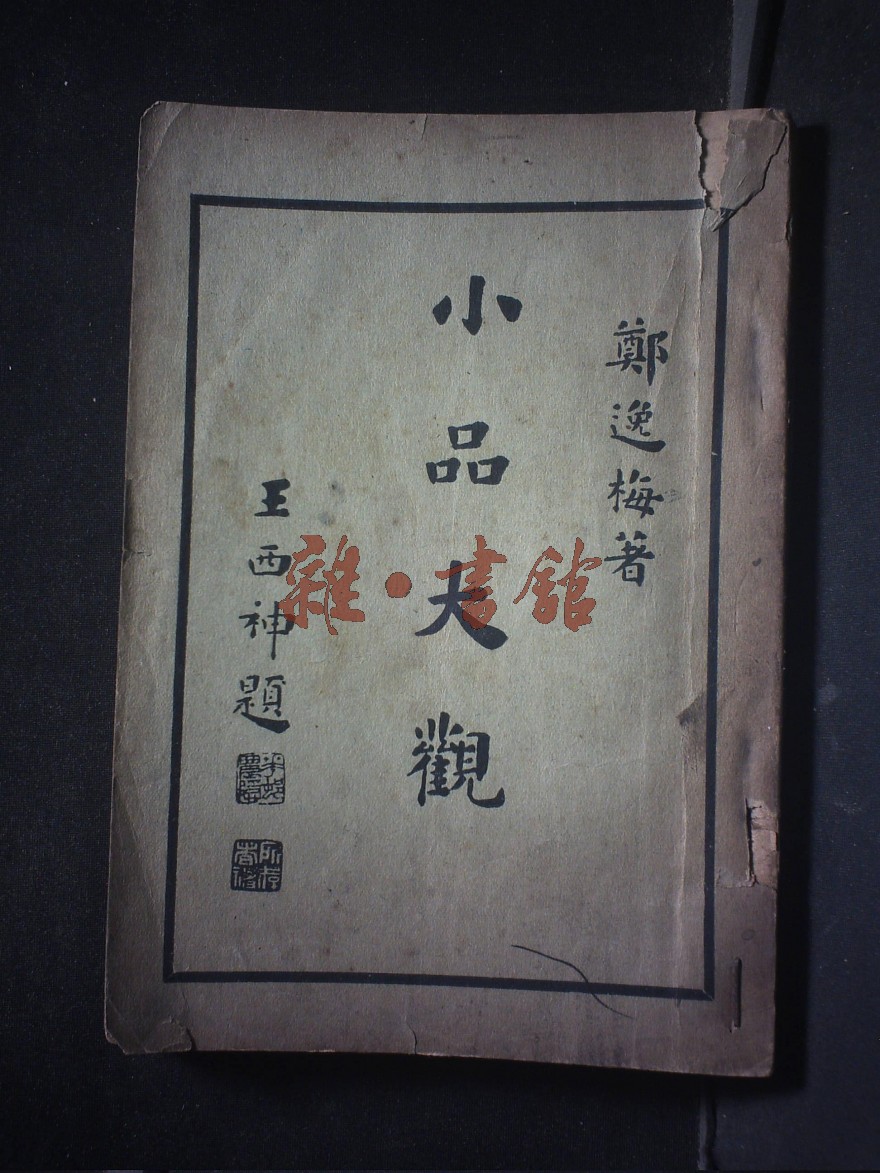 鄭逸梅著
小品大觀
王西神題
雜·書館